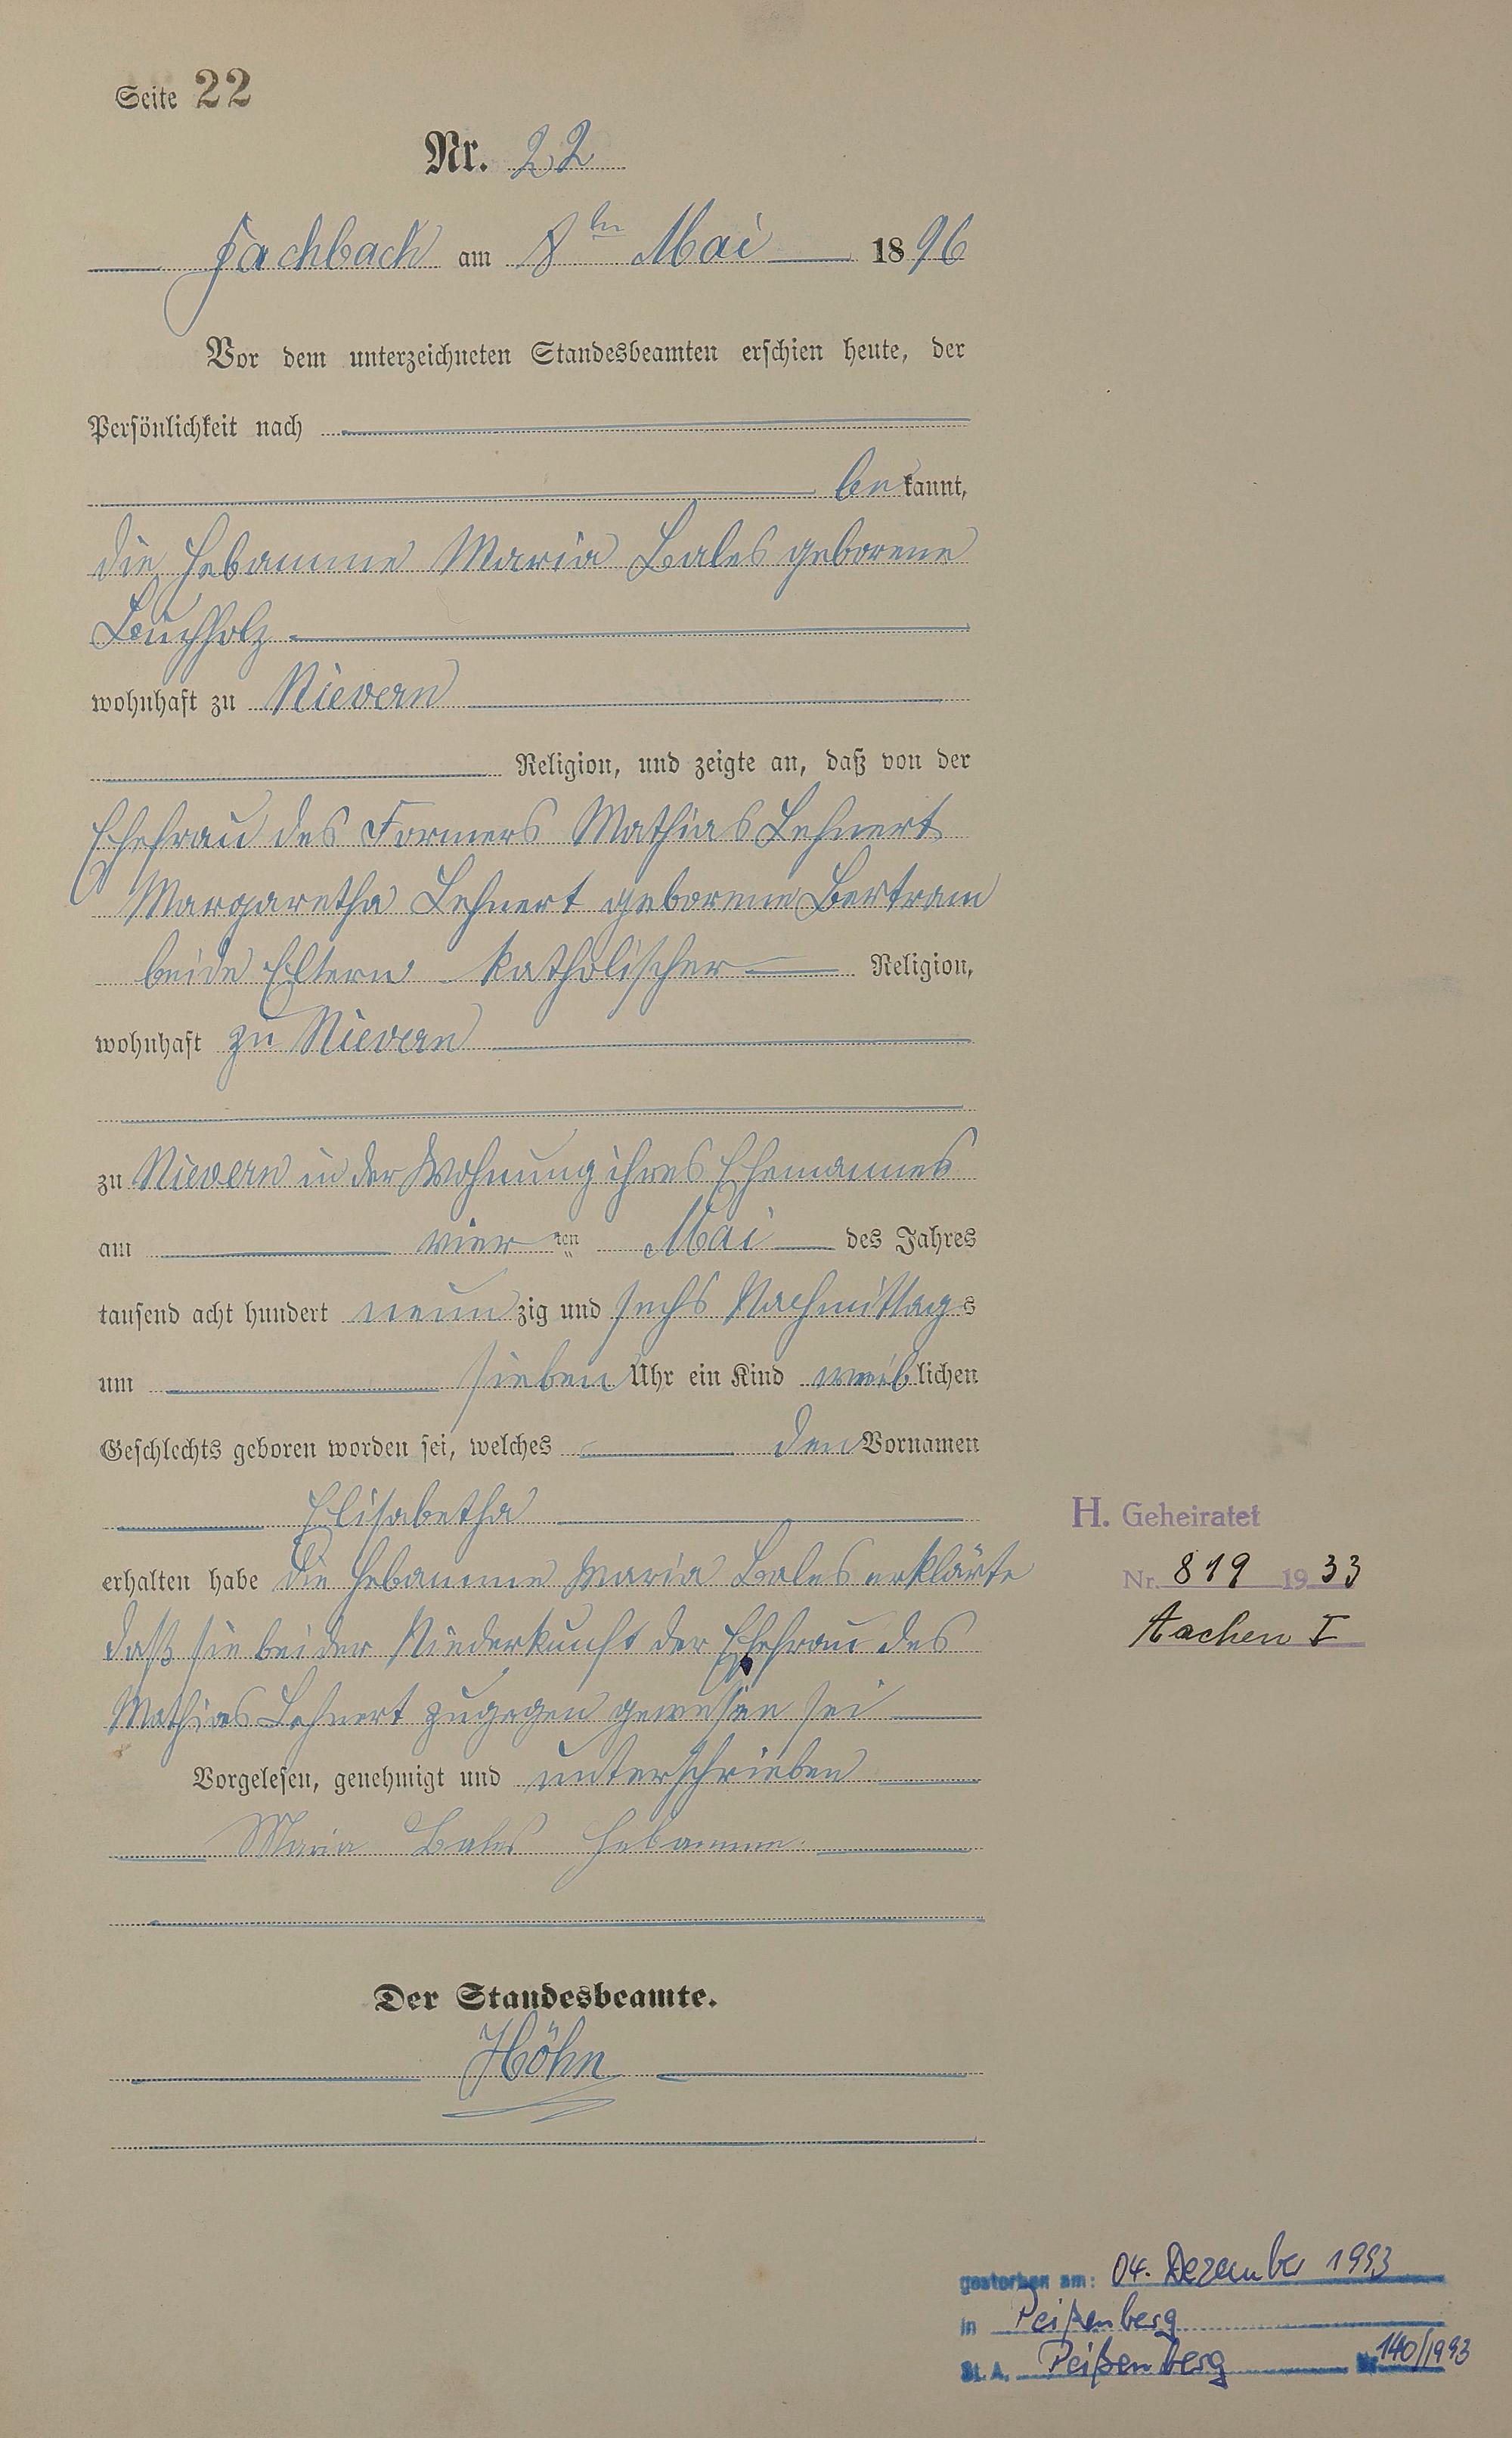 Seite 22
Nr. 22
Fachbach am 8ten Mai 1896
Vor dem unterzeichneten Standesbeamten erschien heute, der
Persönlichkeit nach
bekannt,
die Hebamme Maria Bales geborene
Buchholz
wohnhaft zu Nievern
Religion, und zeigte an, daß von der
Ehefrau des Formers Mathias Lehnert
Margaretha Lehnert geborene Bertram
beide Eltern katholischer Religion,
wohnhaft zu Nievern
zu Nievern in der Wohnung ihres Ehemannes
am vierten Mai des Jahres
tausend acht hundert neunzig und sechs Nachmittags
um sieben Uhr ein Kind weiblichen
Geschlechts geboren worden sei, welches den Vornamen
Elisabetha
erhalten habe die Hebamme Maria Bales erklärte
daß sie bei der Niederkunft der Ehefrau des
Mathias Lehnert zugegen gewesen sei
Vorgelesen, genehmigt und unterschrieben
Maria Bales Hebamme.
Der Standesbeamte.
Höhn
H. Geheiratet
Nr. 819 1933
Aachen I
gestorben am: 04. Dezember 1993
in Peißenberg
St. A. Peißenberg Nr. 140/1993